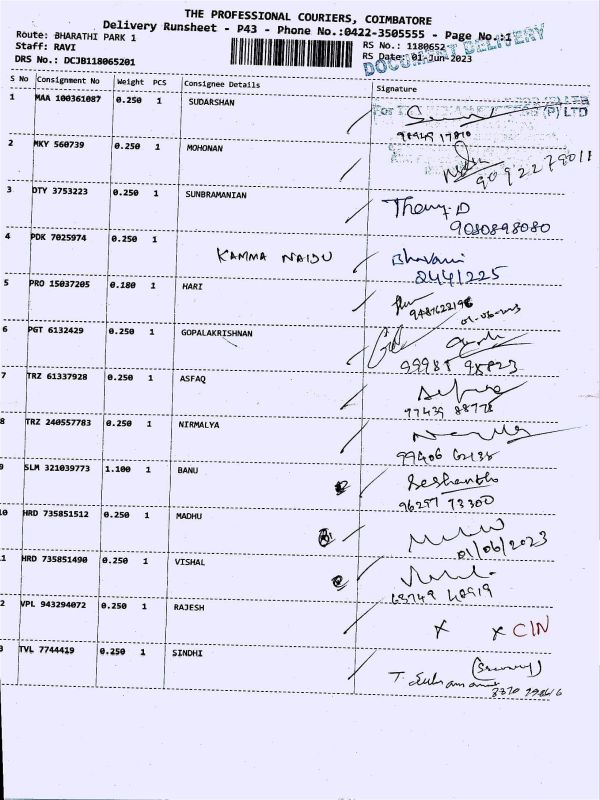 THE PROFESSIONAL COURIERS, COIMBATORE
Delivery Runsheet - P43 - Phone No.:0422-3505555 - Page No.:1
Route: BHARATHI PARK 1
RS No.: 1180652
Staff: RAVI
RS Date: 01-Jun-2023
DRS No.: DCJB118065201
DOCUMENT DELIVERY
S No Consignment No Weight PCS Consignee Details Signature
1 MAA 100361087 0.250 1 SUDARSHAN
(P) LTD
98949 17810
2 MKY 560739 0.250 1 MOHONAN
9092279011
3 DTY 3753223 0.250 1 SUNBRAMANIAN
9080898080
4 PDK 7025974 0.250 1 KAMMA NAIDU Bhavani
2441225
5 PRO 15037205 0.180 1 HARI
01-06-2023
6 PGT 6132429 0.250 1 GOPALAKRISHNAN
7 TRZ 61337928 0.250 1 ASFAQ
77439 88778
8 TRZ 240557783 0.250 1 NIRMALYA
99406 62138
9 SLM 321039773 1.100 1 BANU
96297 73300
10 HRD 735851512 0.250 1 MADHU
01/06/2023
1 HRD 735851490 0.250 1 VISHAL
63749 48919
2 VPL 943294072 0.250 1 RAJESH X X C/N
3 TVL 7744419 0.250 1 SINDHI